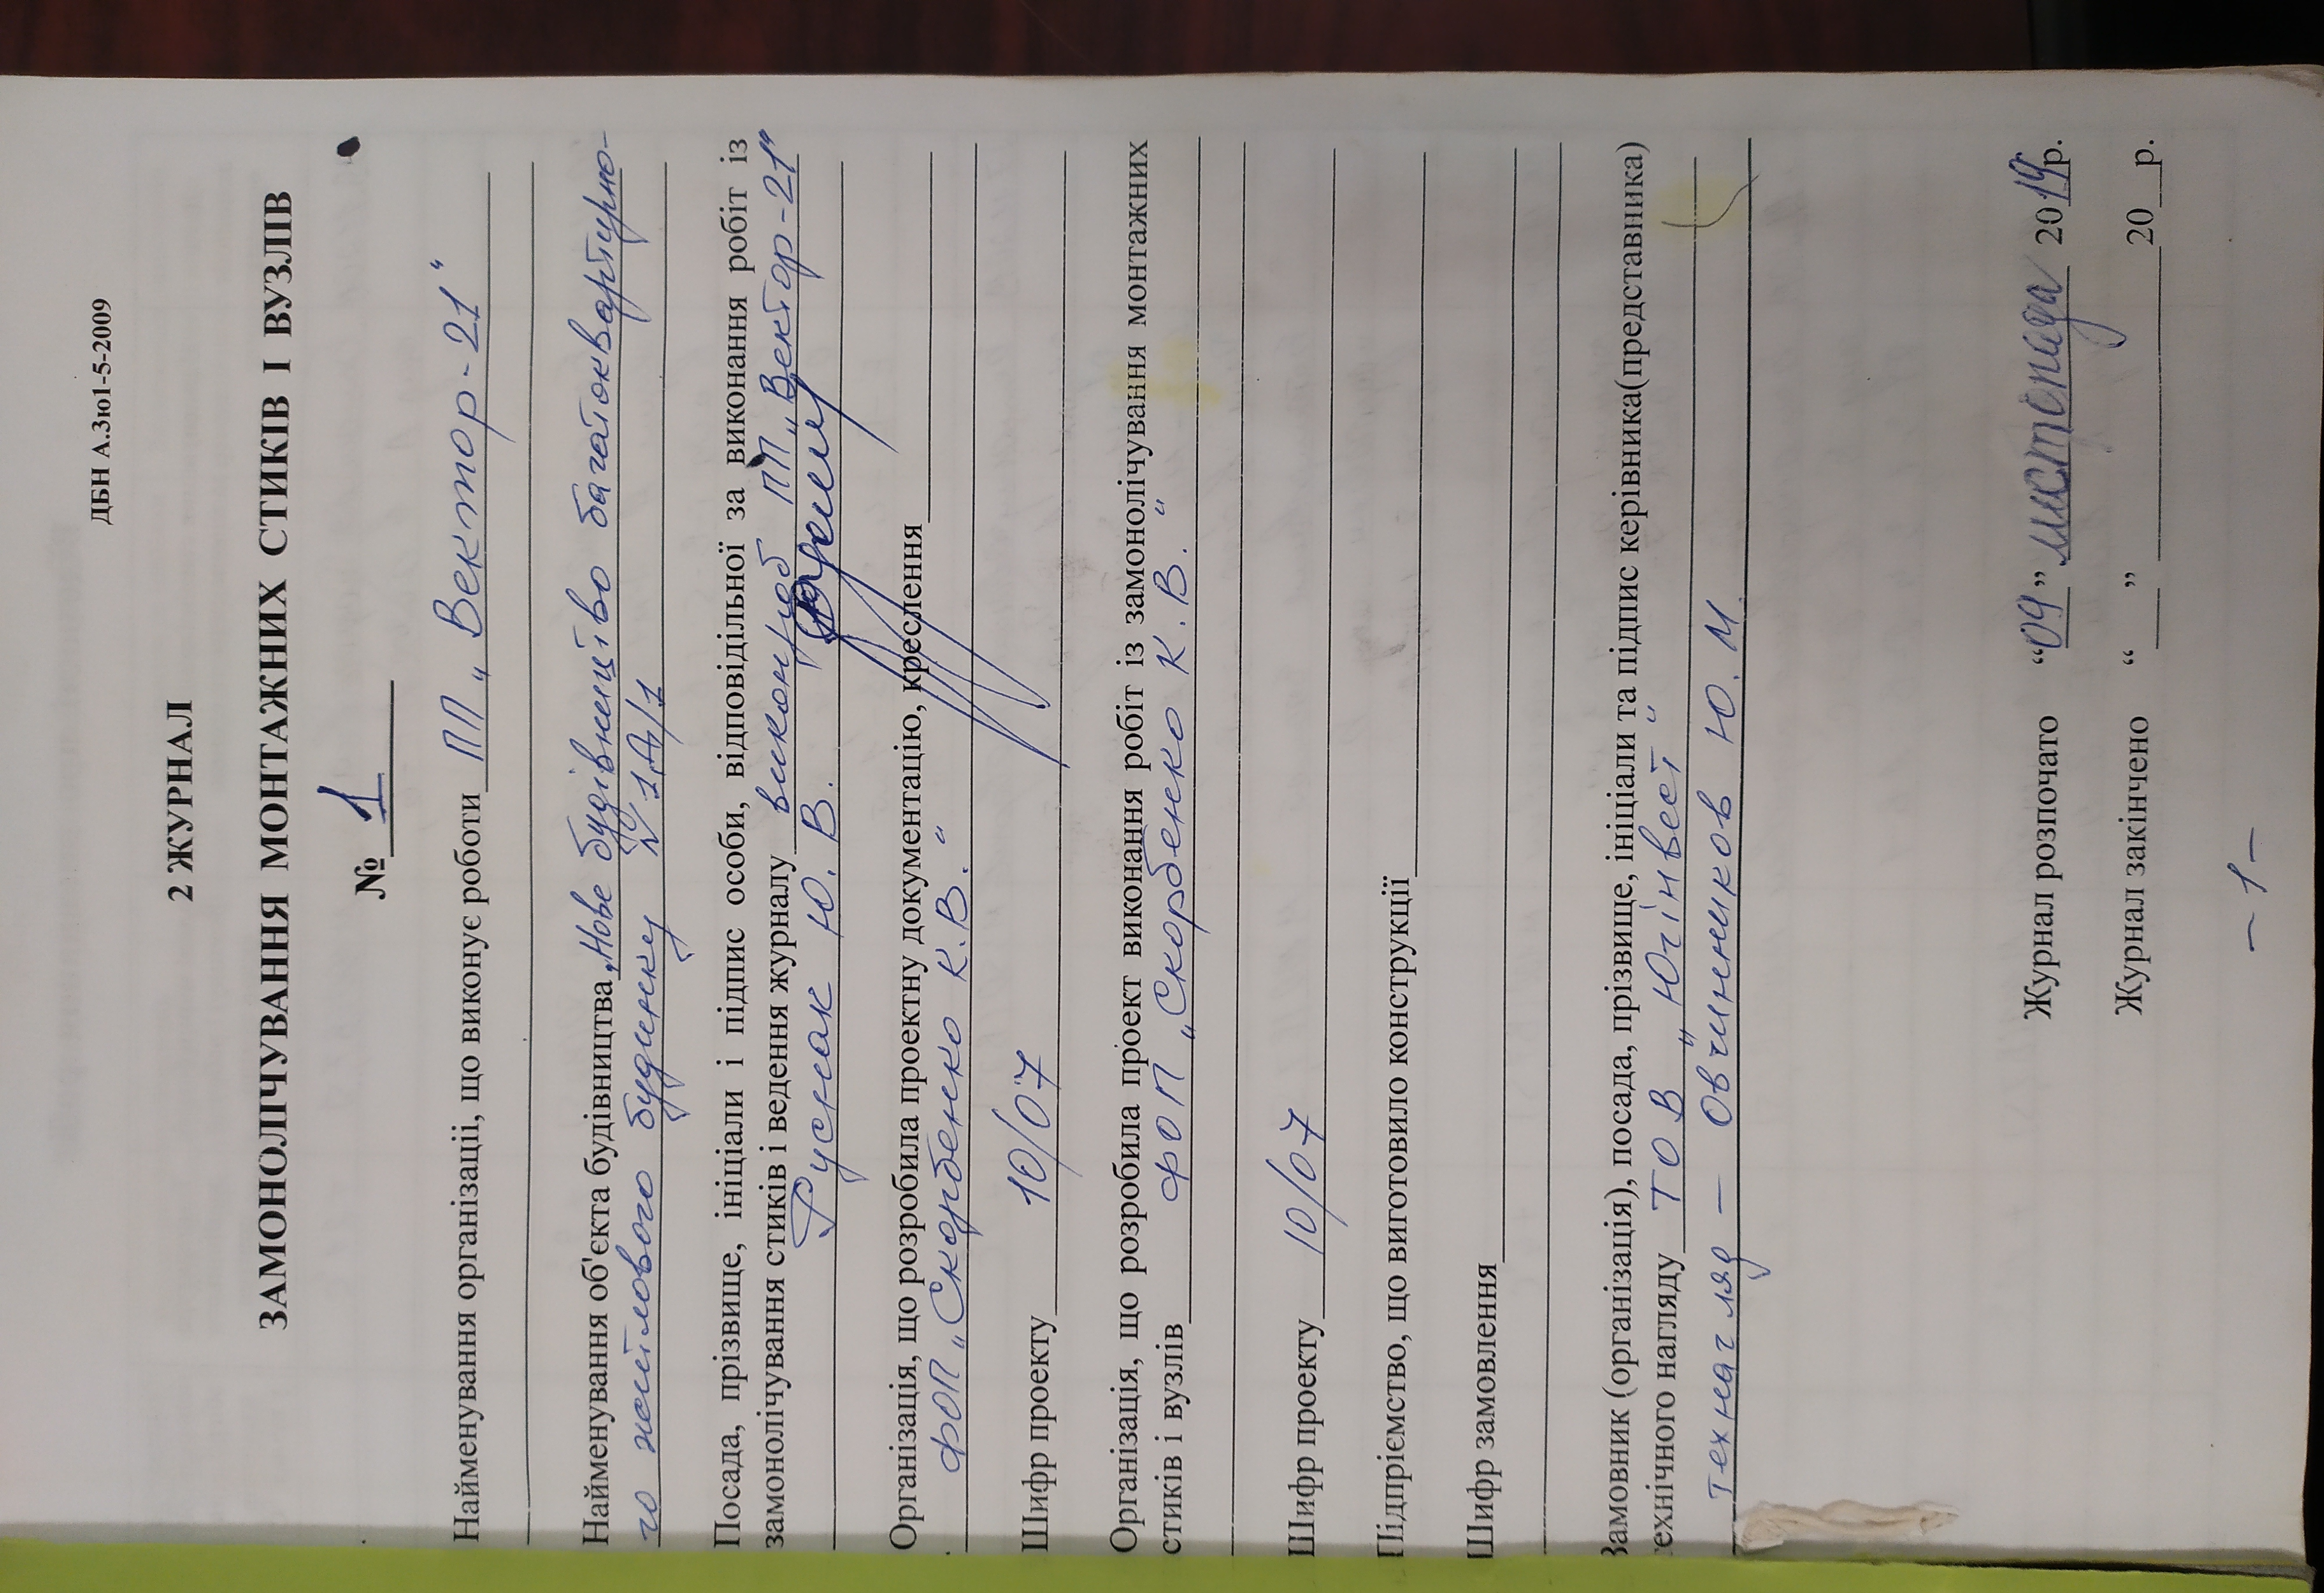 ДБН А.3ю1-5-2009
2 ЖУРНАЛ
ЗАМОНОЛІЧУВАННЯ МОНТАЖНИХ СТИКІВ І ВУЗЛІВ
№ 1
Найменування організації, що виконує роботи ПП „Вектор-21"
Найменування об'єкта будівництва „Нове будівництво багатоквартирно-
го житлового будинку №1А/1
Посада, прізвище, ініціали і підпис особи, відповідальної за виконання робіт із
замонолічування стиків і ведення журналу виконроб ПП „Вектор-21"
Руснак Ю. В.
Організація, що розробила проектну документацію, креслення
ФОП „Скорбенко К.В."
Шифр проекту 10/07
Організація, що розробила проект виконання робіт із замонолічування монтажних
стиків і вузлів ФОП „Скорбенко К.В."
Шифр проекту 10/07
Підприємство, що виготовило конструкції
Шифр замовлення
Замовник (організація), посада, прізвище, ініціали та підпис керівника(представника)
технічного нагляду ТОВ „Югінвест"
технагляд – Овчинников Ю. М.
Журнал розпочато “04” листопада 2019р.
Журнал закінчено “ ” 20 р.
– 1 –